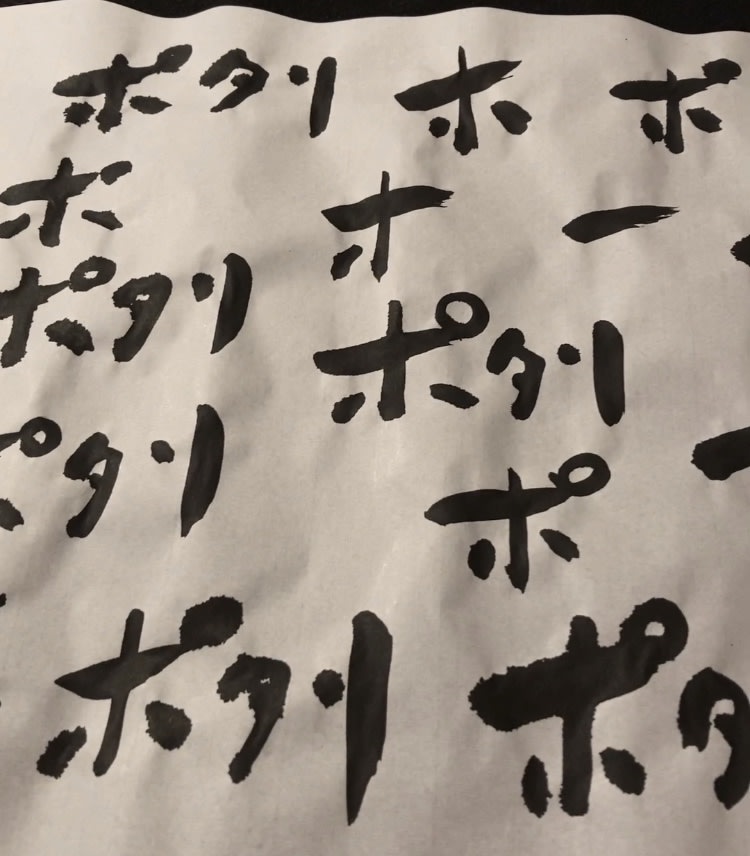 ポタリ ホ ポ
ポ オ 一
ポタリ
ポタリ
ポタリ
ポ
ポタリ ポタ